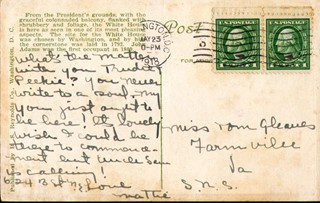 From the President's grounds, with its
graceful colonnaded balcony, flanked with
shrubbery and foliage, the White House
is here as seen in one of its most pleasing
aspects. The site for the White House
was chosen by Washington, and by him
the cornerstone was laid in 1792. John
Adams was the first occupant in 1800.
Post
MAY 23
6-PM
U.S. POSTAGE
U.S. POSTAGE
What's the matter
with you
You never
write to a soul, my
you just ought to
be here! It lovely
wish I could be
there to commence-
ment but Uncle Sam
is calling!
Love
Mattie
Miss Tom Gleaves
Farmville
Va
S.N.S.
Reynolds Co., Washington, D. C.